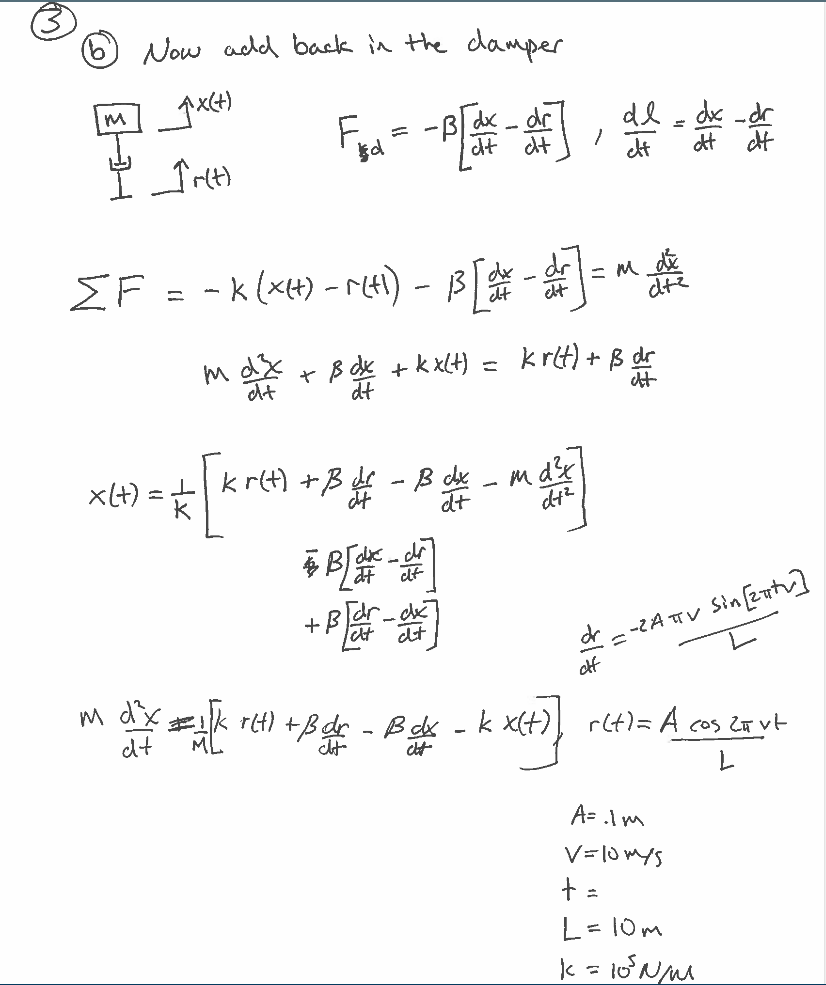 ③
ⓑ Now add back in the damper
M x(t)
r(t)
F_d = -β[dx/dt - dr/dt] , dl/dt = dx/dt - dr/dt
ΣF = -k(x(t) - r(t)) - β[dx/dt - dr/dt] = m d²x/dt²
m d²x/dt + β dx/dt + k x(t) = k r(t) + β dr/dt
x(t) = 1/k [k r(t) + β dr/dt - β dx/dt - m d²x/dt²]
- β[dx/dt - dr/dt]
+ β[dr/dt - dx/dt]
dr/dt = -2Aπv sin[2πtv]/L
m d²x/dt = 1/M [k r(t) + β dr/dt - β dx/dt - k x(t)] r(t) = A cos 2πvt/L
A = .1m
V = 10 m/s
t =
L = 10m
k = 10⁵ N/m